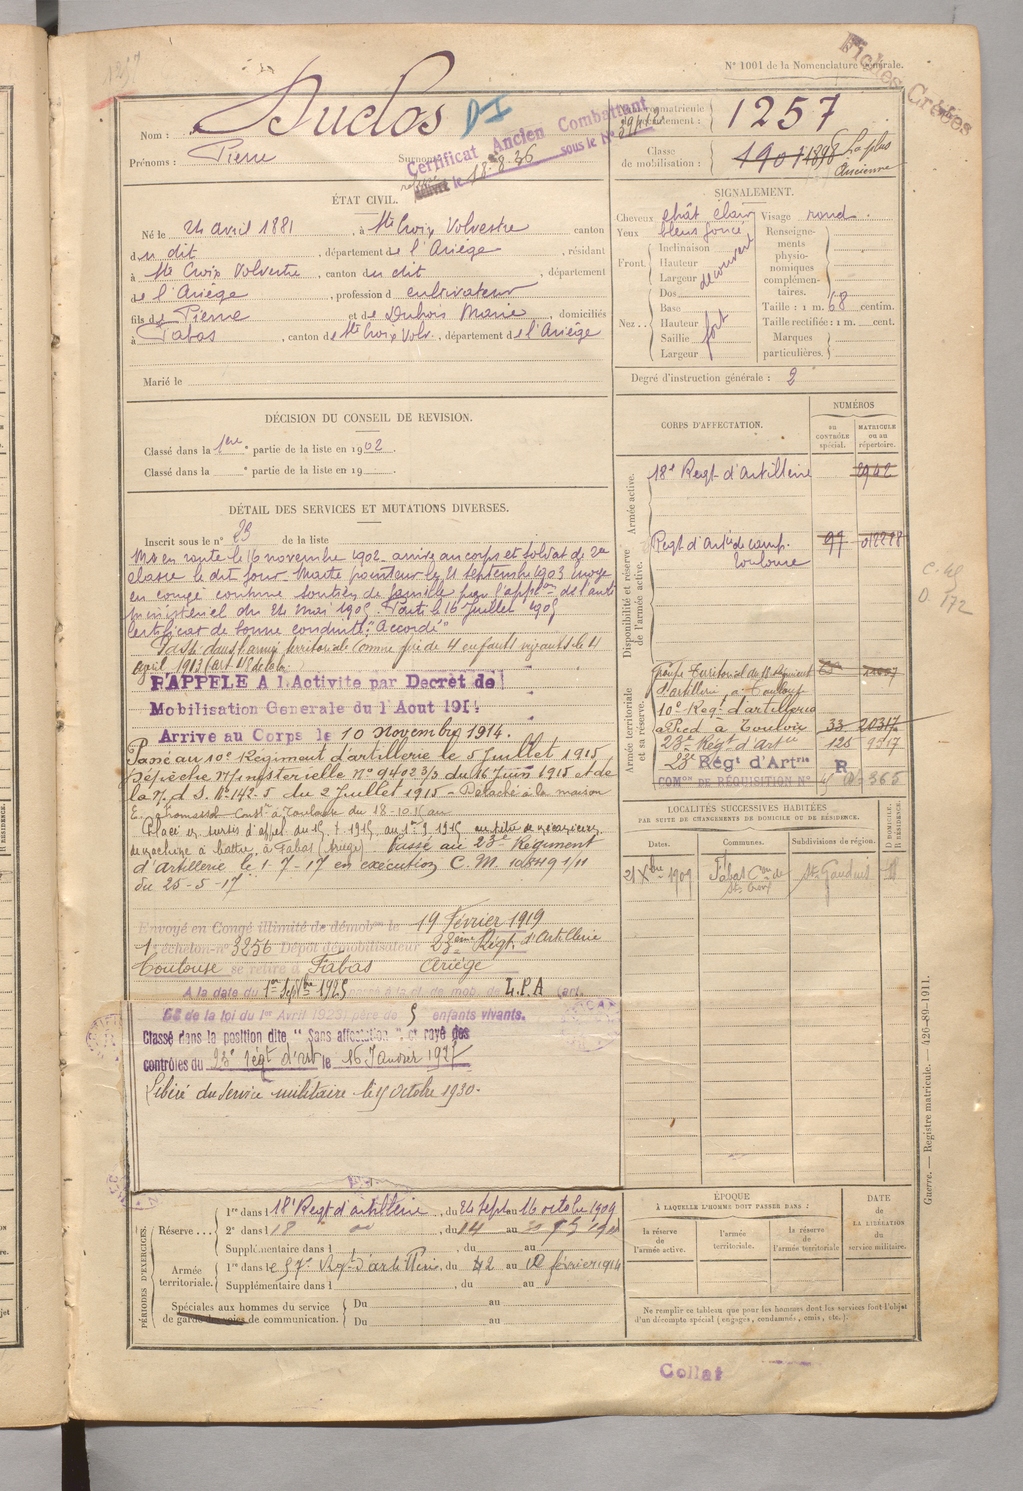 N° 1001 de la Nomenclature générale.
Fiches Créées
1257
Nom : Duclos
DI
Prénoms : Pierre Surnoms
Certificat Ancien Combattant
le 18-8-36 sous le N°
matricule
du recrutement : 1257
Classe de mobilisation : 1901 1898 La plus Ancienne
ÉTAT CIVIL.
Né le 24 avril 1881, à Ste Croix Volvestre canton
du dit, département de l'Ariège, résidant
à Ste Croix Volvestre, canton du dit, département
de l'Ariège, profession d cultivateur
fils de Pierre et de Dubois Marie, domiciliés
à Fabas, canton de Ste Croix Volv., département de l'Ariège
Marié le
SIGNALEMENT.
Cheveux chât clair Visage rond.
Yeux bleus foncé
Front. Inclinaison
Hauteur
Largeur
découvert
Nez. Dos
Base
Hauteur
Saillie
Largeur
fort
Renseignements physionomiques complémentaires.
Taille : 1 m. 68 centim.
Taille rectifiée : 1 m. cent.
Marques particulières.
Degré d'instruction générale : 2
DÉCISION DU CONSEIL DE REVISION.
Classé dans la 1ère partie de la liste en 1902.
Classé dans la partie de la liste en 19
DÉTAIL DES SERVICES ET MUTATIONS DIVERSES.
Inscrit sous le n° 23 de la liste
Mis en route le 16 novembre 1902 arrivé au corps et soldat de 2e
classe le dit jour. Maître pointeur le 21 septembre 1903 envoyé
en congé comme soutien de famille
ministériel du 24 mai 1905. Parti le 16 juillet 1905
Certificat de bonne conduite "Accordé"
Passé dans l'armée territoriale comme père de 4 enfants vivants le 11
avril 1913
RAPPELÉ A l'Activite par Decret de
Mobilisation Generale du 1 Aout 1914
Arrive au Corps le 10 novembre 1914.
Passé au 10e Régiment d'artillerie le 5 juillet 1915
Dépêche Ministerielle N° 9402 3/3 du 16 Juin 1915 et de
la N. d S. N° 142-5 du 2 Juillet 1915 - Détaché à la maison
E. Thomassot Constr à Toulouse du 18-10-15 au
Placé en sursis d'appel du au titre de mécanicien
de machine à battre, à Fabas (Ariège). Passé au 23e Régiment
d'Artillerie le 1-7-17 en exécution C. M. 10849 1/11
du 25-5-17
Envoyé en Congé illimité de démobon le 19 Février 1919
1 échelon n° 3256 Dépôt démobilisateur 23ème Régt d'Artillerie
Toulouse se retire à Fabas Ariège
A la date du 1er Septbre 1925 passé à la cl. de mob. de L.P.A (art.
58 de la loi du 1er Avril 1923) père de 5 enfants vivants.
Classé dans la position dite "Sans affectation" et rayé des
contrôles du 23e régt d'art le 16 Janvier 1927
Libéré du service militaire le 15 octobre 1930.
CORPS D'AFFECTATION.
NUMÉROS
au contrôle spécial.
MATRICULE ou au répertoire.
Armée active.
18e Régt d'Artillerie 2942
Disponibilité et réserve de l'armée active.
Régt d'Artie de camp. Toulouse 99 012278
C. 45
D. 172
Armée territoriale et sa réserve.
Groupe Territorial du 18 Régiment
d'Artillerie à Toulouse
10e Régt d'artillerie
à Pied à Toulon 33 20317
23e Régt d'Artie 125 9917
23e Régt d'Artie R
COMON DE RÉQUISITION N° 365
LOCALITÉS SUCCESSIVES HABITÉES
PAR SUITE DE CHANGEMENTS DE DOMICILE OU DE RÉSIDENCE.
Dates. Communes. Subdivisions de région.
D DOMICILE. R RÉSIDENCE.
21 Xbre 1909 Fabas Con de Ste Croix St Gaudens D
PÉRIODES D'EXERCICES.
Réserve... 1re dans l 18e Regt d'artillerie, du 24 sept au 16 octobre 1909
2e dans l 18 do, du 14 au
Supplémentaire dans l , du au
Armée territoriale. 1re dans le 57e Regt d'artillerie, du 2 au 10 février 1914
Supplémentaire dans l , du au
Spéciales aux hommes du service de garde des voies de communication. Du au
Du au
ÉPOQUE
À LAQUELLE L'HOMME DOIT PASSER DANS :
la réserve de l'armée active.
l'armée territoriale.
la réserve de l'armée territoriale
DATE
de LA LIBÉRATION du service militaire.
Ne remplir ce tableau que pour les hommes dont les services font l'objet
d'un décompte spécial (engagés, condamnés, omis, etc.).
Guerre. — Registre matricule. — 426-89-1911.
Collat